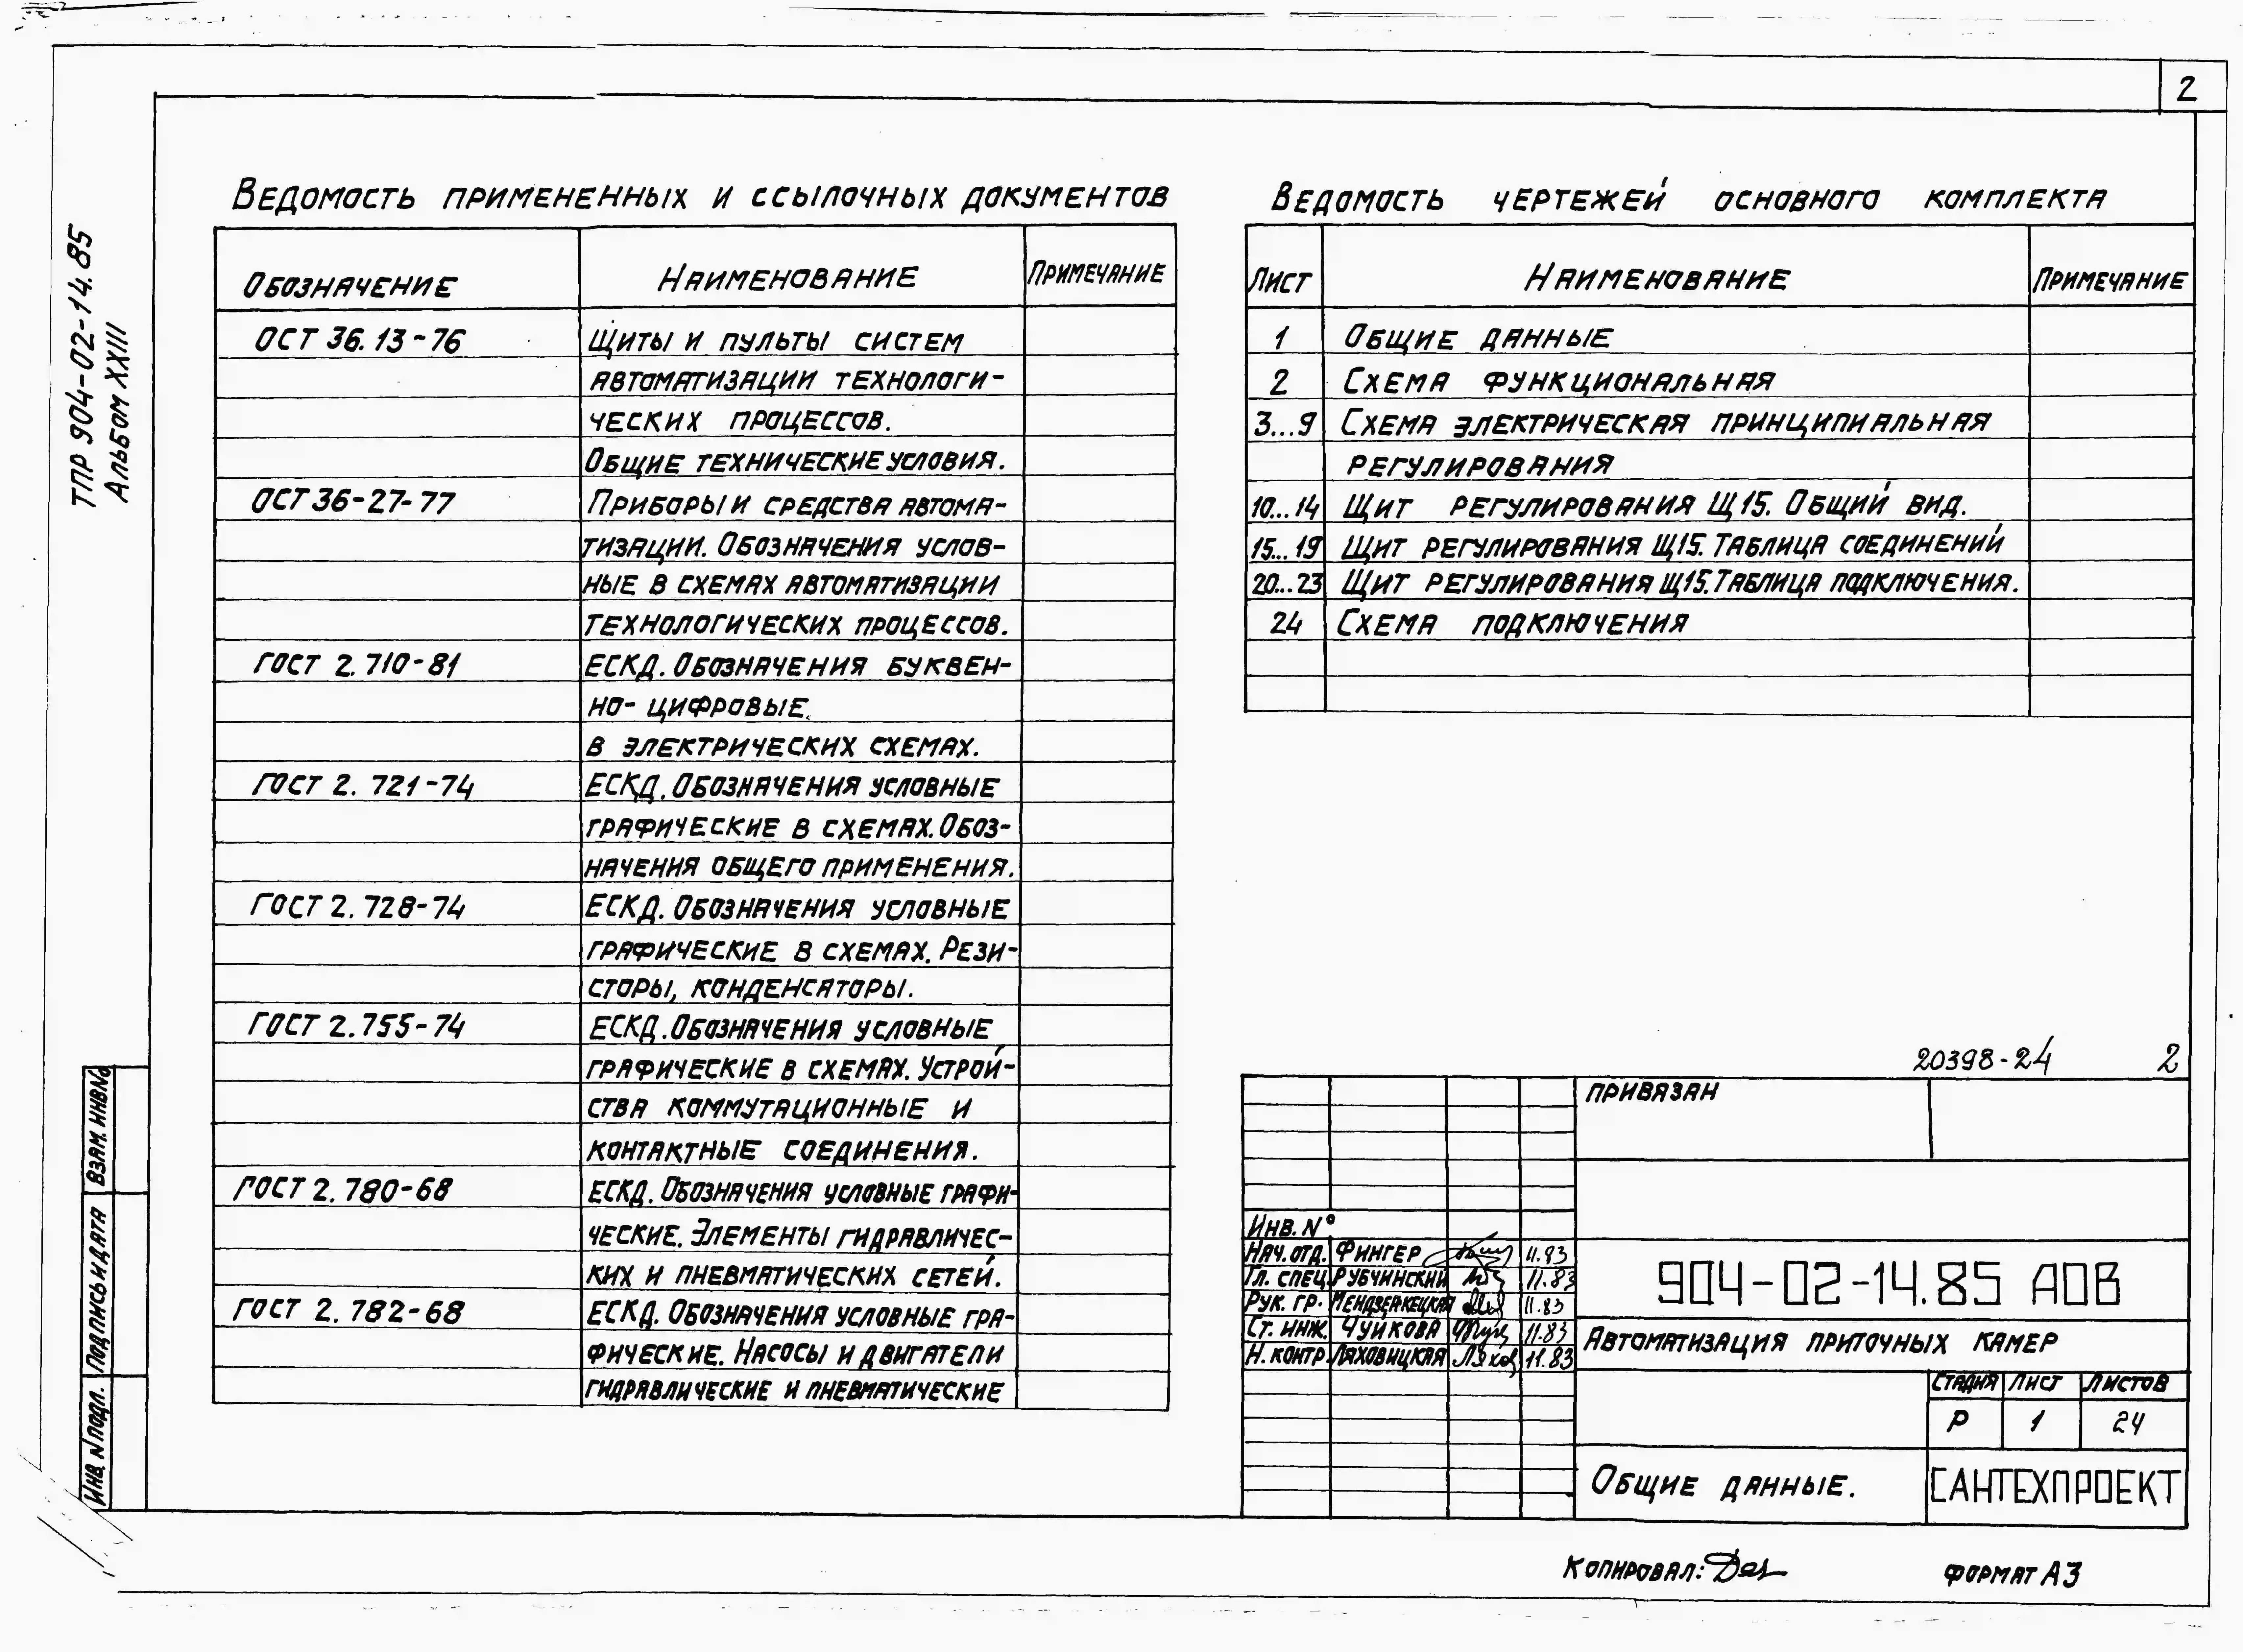 2
ТПР 904-02-14.85
Альбом XXIII
Ведомость примененных и ссылочных документов
Обозначение Наименование Примечание
ОСТ 36.13-76 Щиты и пульты систем
автоматизации технологи-
ческих процессов.
Общие технические условия.
ОСТ 36-27-77 Приборы и средства автома-
тизации. Обозначения услов-
ные в схемах автоматизации
технологических процессов.
ГОСТ 2.710-81 ЕСКД. Обозначения буквен-
но-цифровые
в электрических схемах.
ГОСТ 2.721-74 ЕСКД. Обозначения условные
графические в схемах. Обоз-
начения общего применения.
ГОСТ 2.728-74 ЕСКД. Обозначения условные
графические в схемах. Рези-
сторы, конденсаторы.
ГОСТ 2.755-74 ЕСКД. Обозначения условные
графические в схемах. Устрой-
ства коммутационные и
контактные соединения.
ГОСТ 2.780-68 ЕСКД. Обозначения условные графи-
ческие. Элементы гидравличес-
ких и пневматических сетей.
ГОСТ 2.782-68 ЕСКД. Обозначения условные гра-
фические. Насосы и двигатели
гидравлические и пневматические
Ведомость чертежей основного комплекта
Лист Наименование Примечание
1 Общие данные
2 Схема функциональная
3...9 Схема электрическая принципиальная
регулирования
10...14 Щит регулирования Щ15. Общий вид.
15...19 Щит регулирования Щ15. Таблица соединений
20...23 Щит регулирования Щ15. Таблица подключения.
24 Схема подключения
20398-24 2
Привязан
Инв. N°
Нач. отд. Фингер 11.83
Гл. спец. Рубчинский 11.83
Рук. гр. Мендзержецкая 11.83
Ст. инж. Чуйкова 11.83
Н. контр. Ляховицкая 11.83
904-02-14.85 АОВ
Автоматизация приточных камер
Стадия Лист Листов
Р 1 24
Общие данные.
САНТЕХПРОЕКТ
Взам. инв №
Подпись и дата
Инв. N подл.
Копировал:
Формат А3